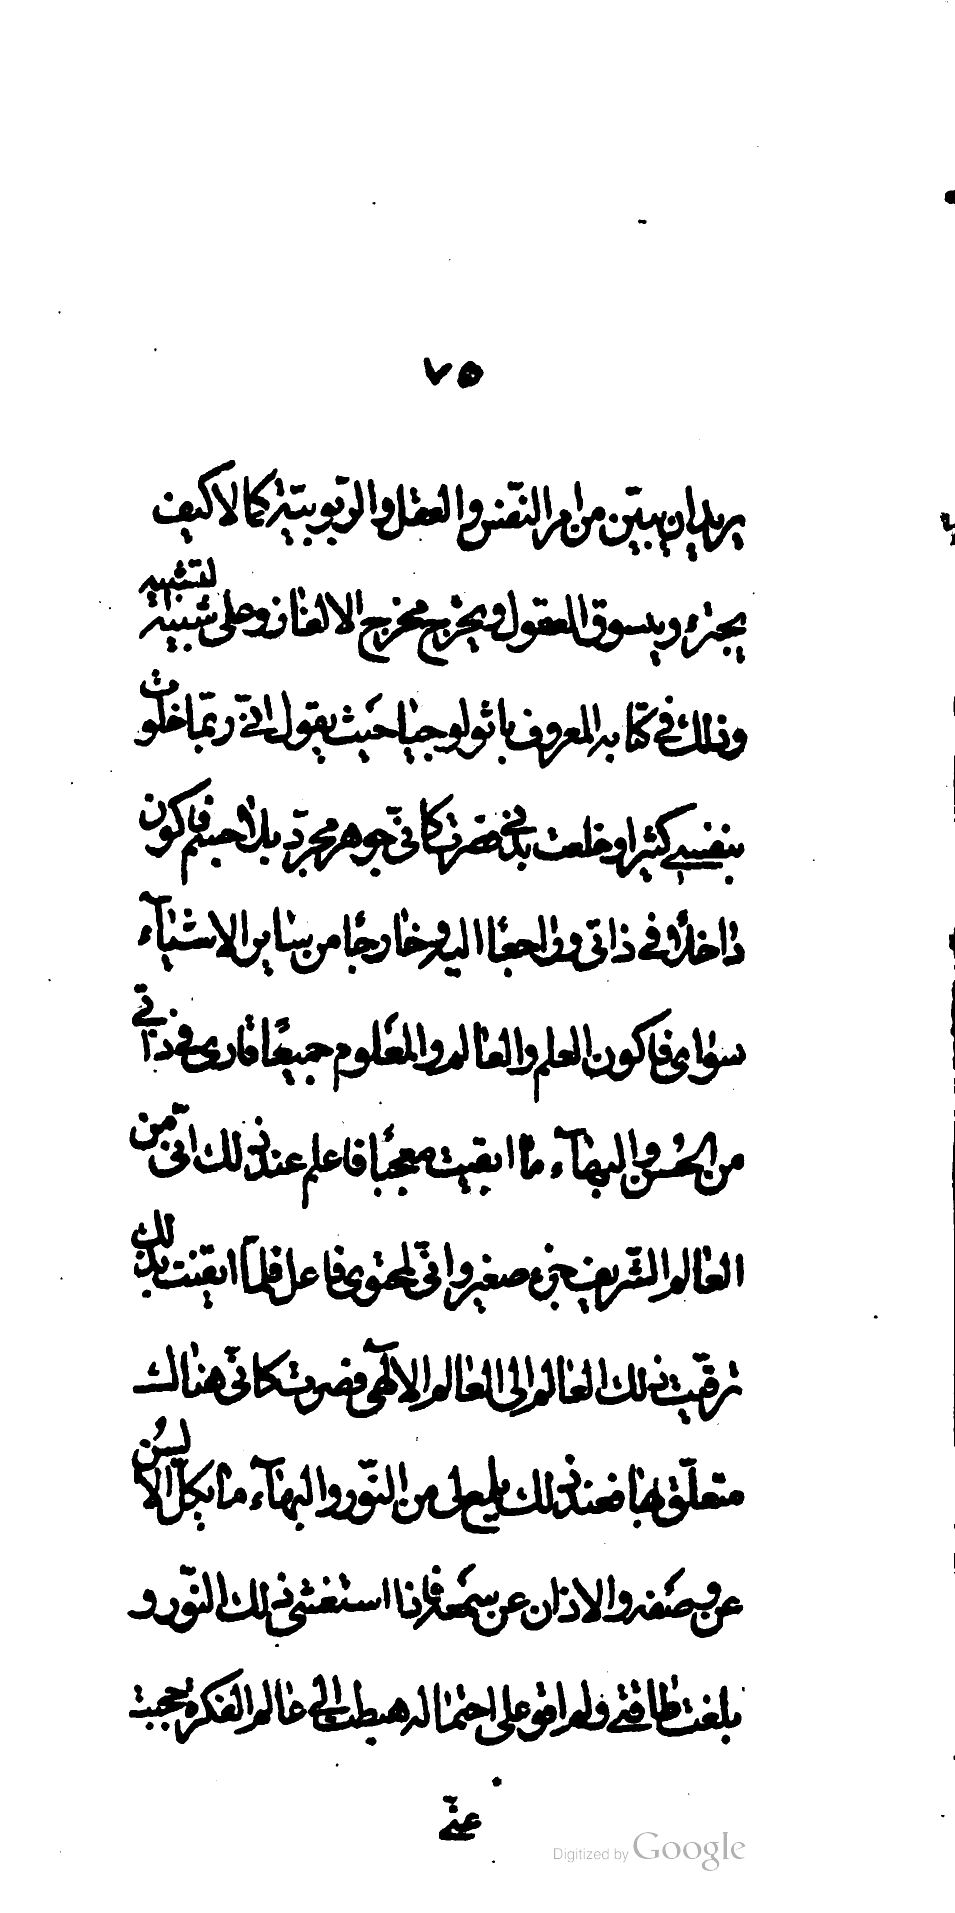 ٧٥
يريد ان يبيّن من امر النّفس والعقل والربوبيّة كما لا كيف
يجزء ويسوق العقول ويخرج مخرج الالغاز وعلى سبيل التشبيه
وذلك في كتابه المعروف باثولوجيا حيث يقول انّي ربّما خلوت
بنفسي كثيرا وخلعت بدني فصرت كانّي جوهر مجرّد بلا جسم فاكون
داخلًا في ذاتي وراجعًا اليه وخارجًا من سائر الاشياء
سواى فاكون العلم والعالم والمعلوم جميعًا فارى في ذاتي
من الحُسن والبهآء ما ابقيت معجبًا فاعلم عند ذلك انّى من
العالم الشّريف جزء صغير وانّى لمحتوى فاعل فلمآ ايقنت بذلك
ترقّيت بذلك العالم الى العالم الالٓهى فصرت كانّي هنالك
متعلّق بها فعند ذلك يلمع لى من النّور والبهآء ما يكلّ الالسُن
عن وصفه والاذان عن سمعه فاذا استغشى ذلك النّور و
بلغت طاقتے ولم اقو على احتماله هبطت الے عالم الفكرة حجبت
عنّے
Digitized by Google